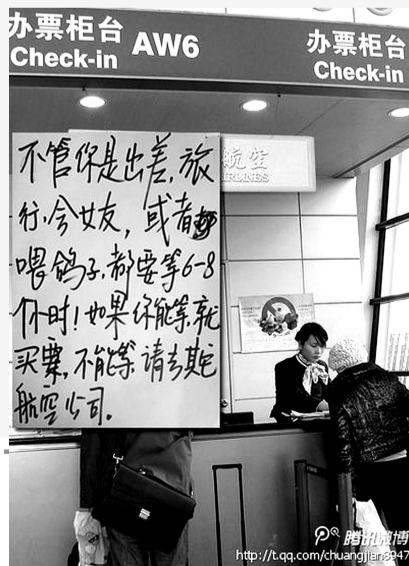 办票柜台
Check-in
AW6
办票柜台
Check-in
航空
AIRLINES
不管你是出差,旅
行,会女友,或者
喂鸽子,都要等6-8
个小时!如果你能等,就
买票,不能等,请去其它
航空公司.
腾讯微博
http://t.qq.com/chuangjian8947